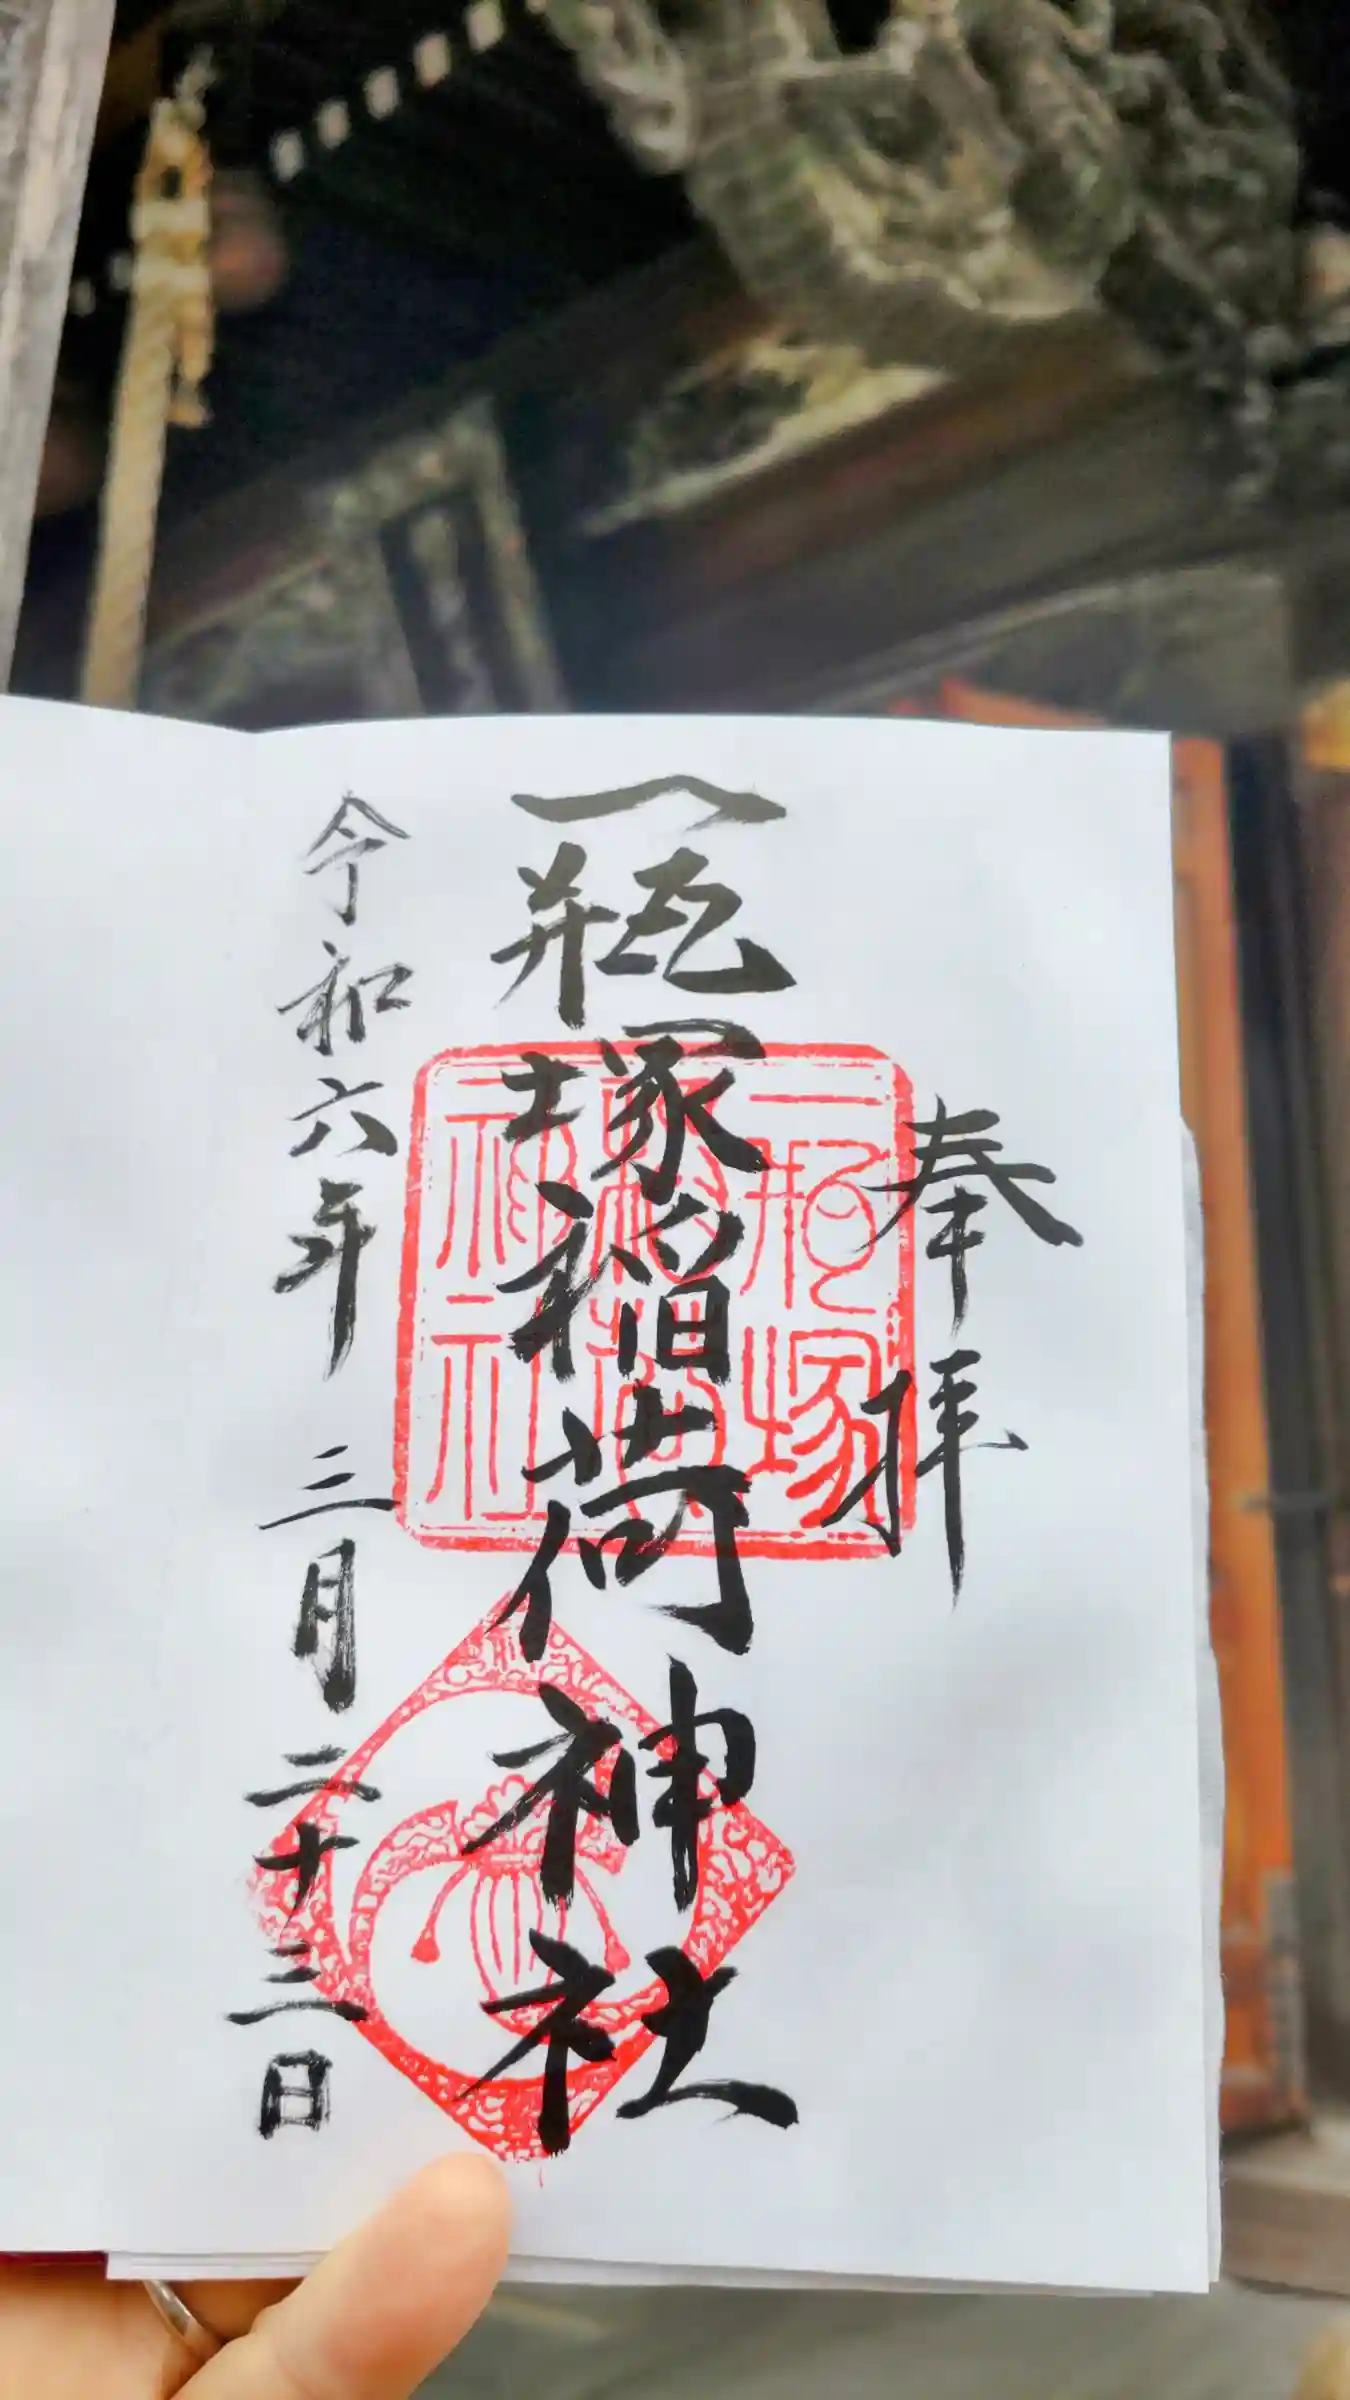 奉拝
一瓶塚稲荷神社
令和六年 三月二十三日
一瓶塚
稲荷
神社